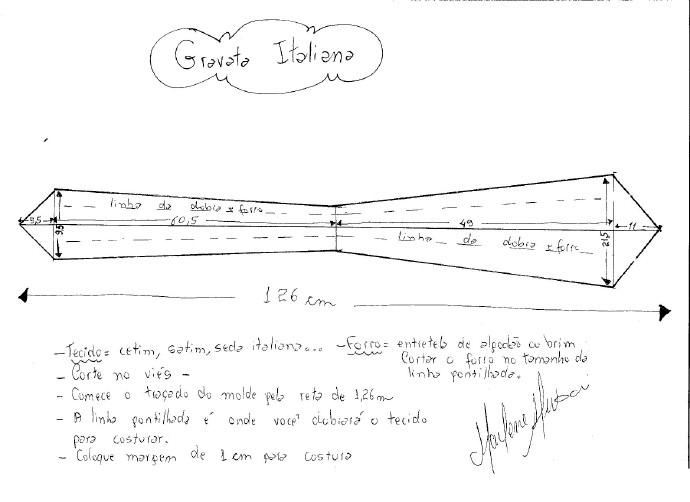 Gravata Italiana
linha da dobra x forro
5,5
60,5
49
11
9,5
21,5
linha da dobra x forro
126 cm
- Tecido = cetim, satim, seda italiana... - Forro = entretela de algodão ou brim
Cortar o forro no tamanho da
linha pontilhada.
- Corte no viés -
- Comece o traçado do molde pela reta de 1,26m
- A linha pontilhada é onde você dobrará o tecido
para costurar.
- Coloque margem de 1 cm para costura